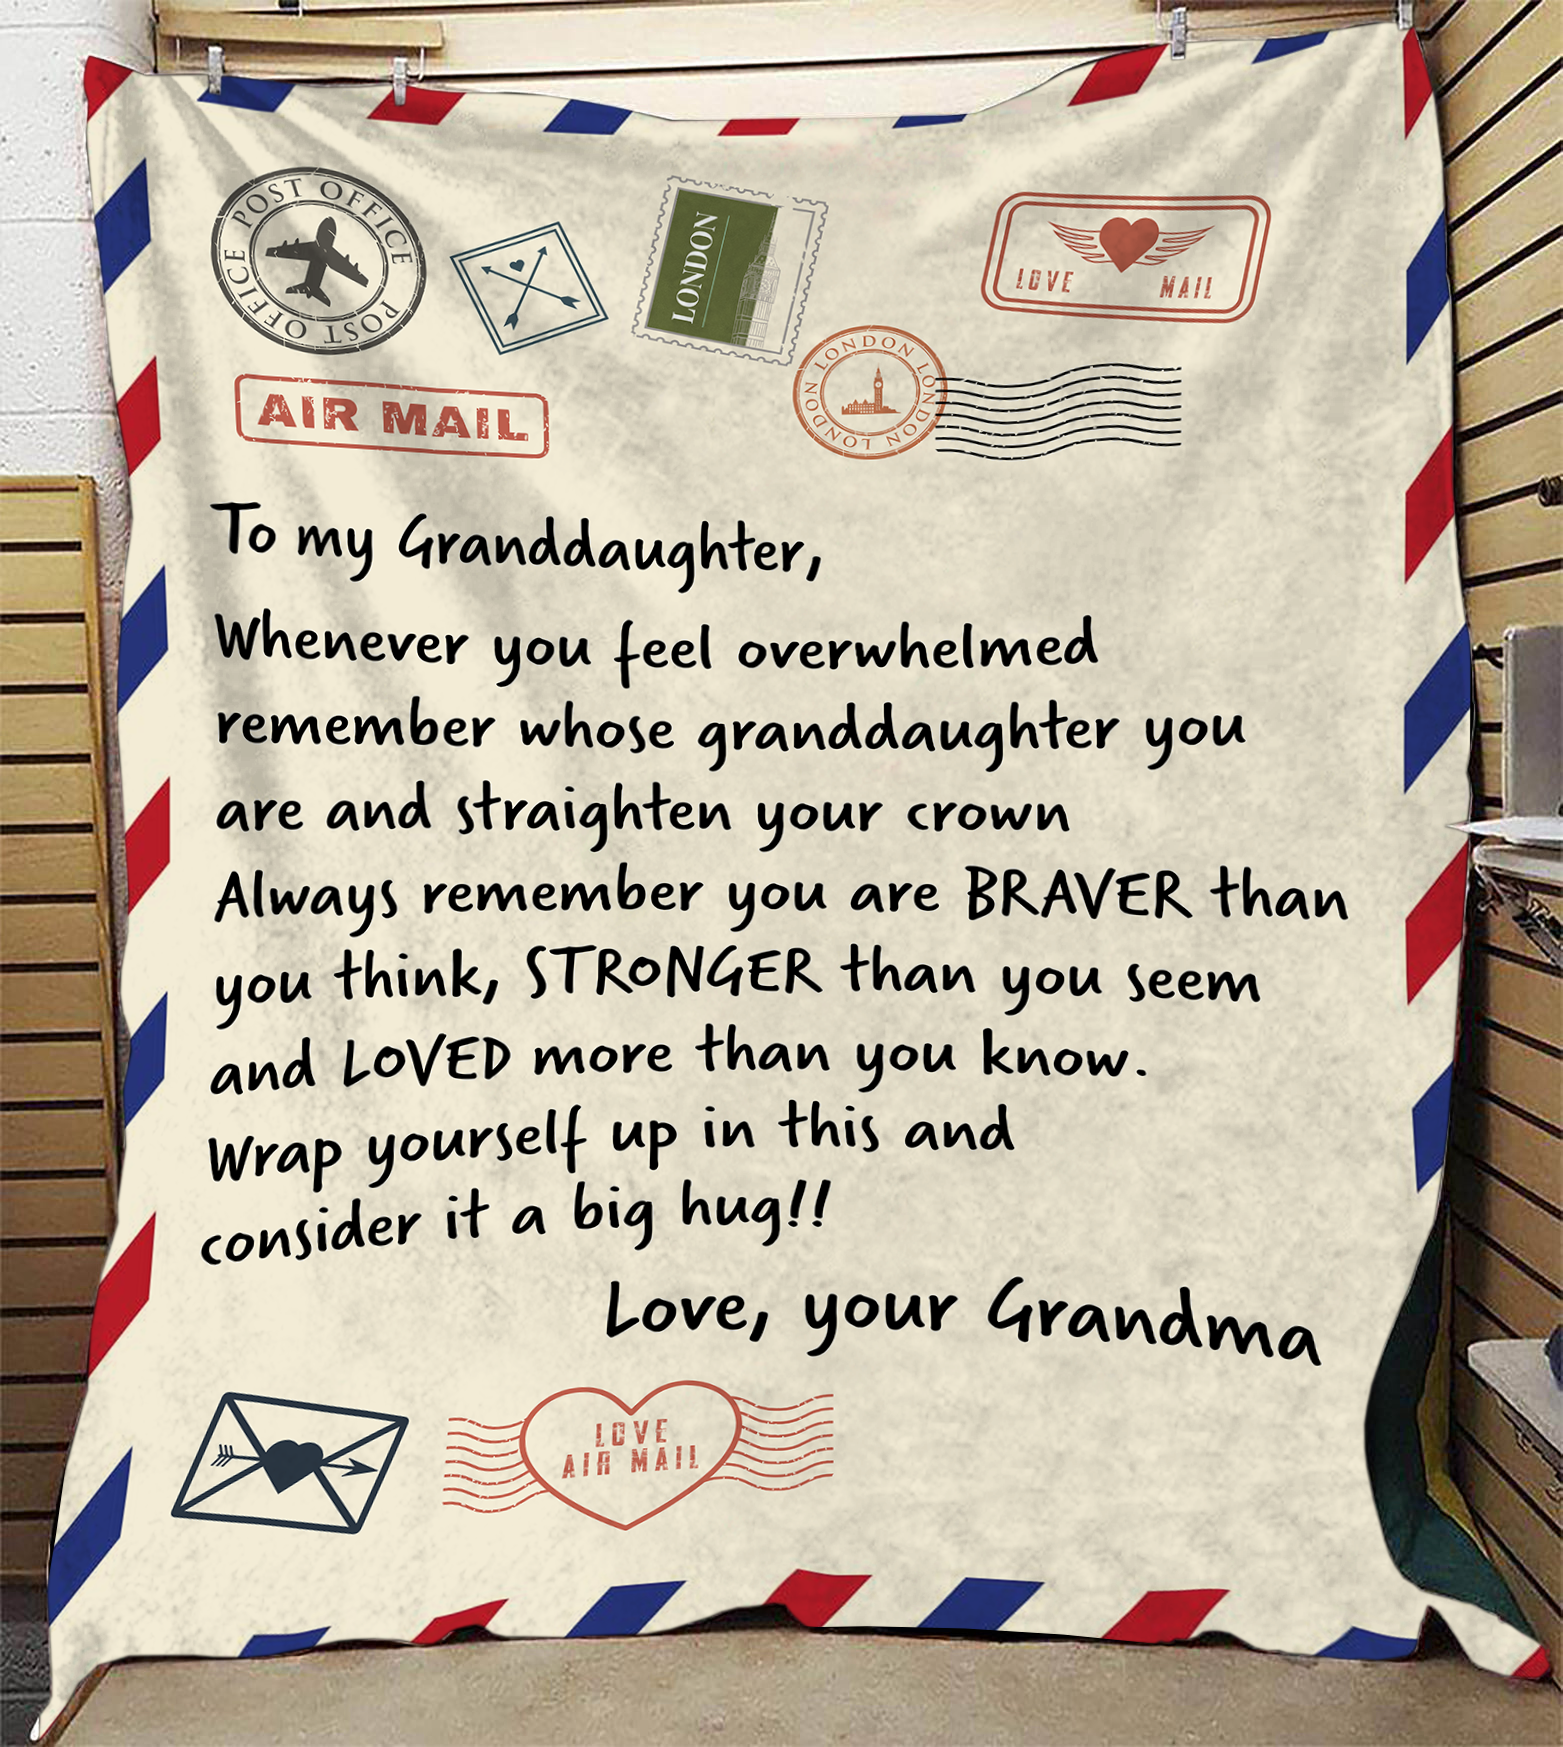 POST OFFICE POST OFFICE
LONDON
LOVE MAIL
LONDON LONDON LONDON LONDON
AIR MAIL
To my Granddaughter,
Whenever you feel overwhelmed
remember whose granddaughter you
are and straighten your crown
Always remember you are BRAVER than
you think, STRONGER than you seem
and LOVED more than you know.
Wrap yourself up in this and
consider it a big hug!!
Love, your Grandma
LOVE
AIR MAIL